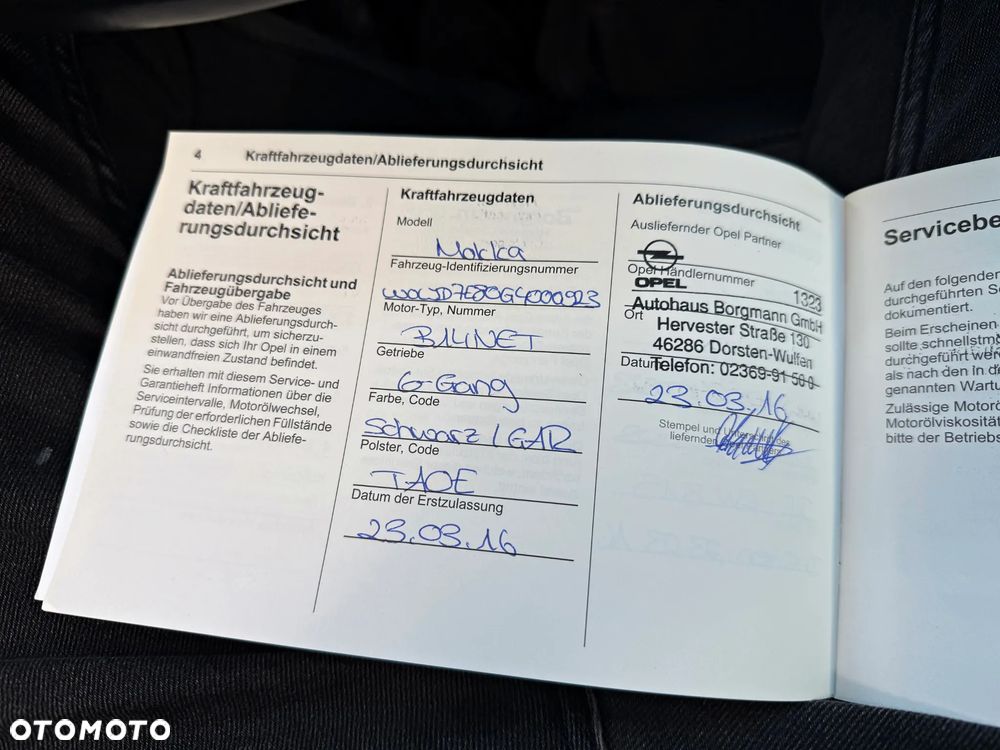 4 Kraftfahrzeugdaten/Ablieferungsdurchsicht
Kraftfahrzeug-
daten/Abliefe-
rungsdurchsicht
Ablieferungsdurchsicht und
Fahrzeugübergabe
Vor Übergabe des Fahrzeuges
haben wir eine Ablieferungsdurch-
sicht durchgeführt, um sicherzu-
stellen, dass sich Ihr Opel in einem
einwandfreien Zustand befindet.
Sie erhalten mit diesem Service- und
Garantieheft Informationen über die
Serviceintervalle, Motorölwechsel,
Prüfung der erforderlichen Füllstände
sowie die Checkliste der Abliefe-
rungsdurchsicht.
Kraftfahrzeugdaten
Modell
Mokka
Fahrzeug-Identifizierungsnummer
W0LJD7E80G4000923
Motor-Typ, Nummer
B14NET
Getriebe
6-Gang
Farbe, Code
Schwarz / GAR
Polster, Code
TAOE
Datum der Erstzulassung
23.03.16
Ablieferungsdurchsicht
Ausliefernder Opel Partner
Opel Händlernummer
OPEL
1323
Autohaus Borgmann GmbH
Ort
Hervester Straße 130
46286 Dorsten-Wulfen
Datum
Telefon: 02369-91 50 0
23.03.16
Stempel und
Servicebe
Auf den folgenden
durchgeführten Se
dokumentiert.
Beim Erscheinen
sollte schnellstmö
durchgeführt werd
als nach den in de
genannten Wartu
Zulässige Motorö
Motorölviskosität
bitte der Betriebs
OTOMOTO